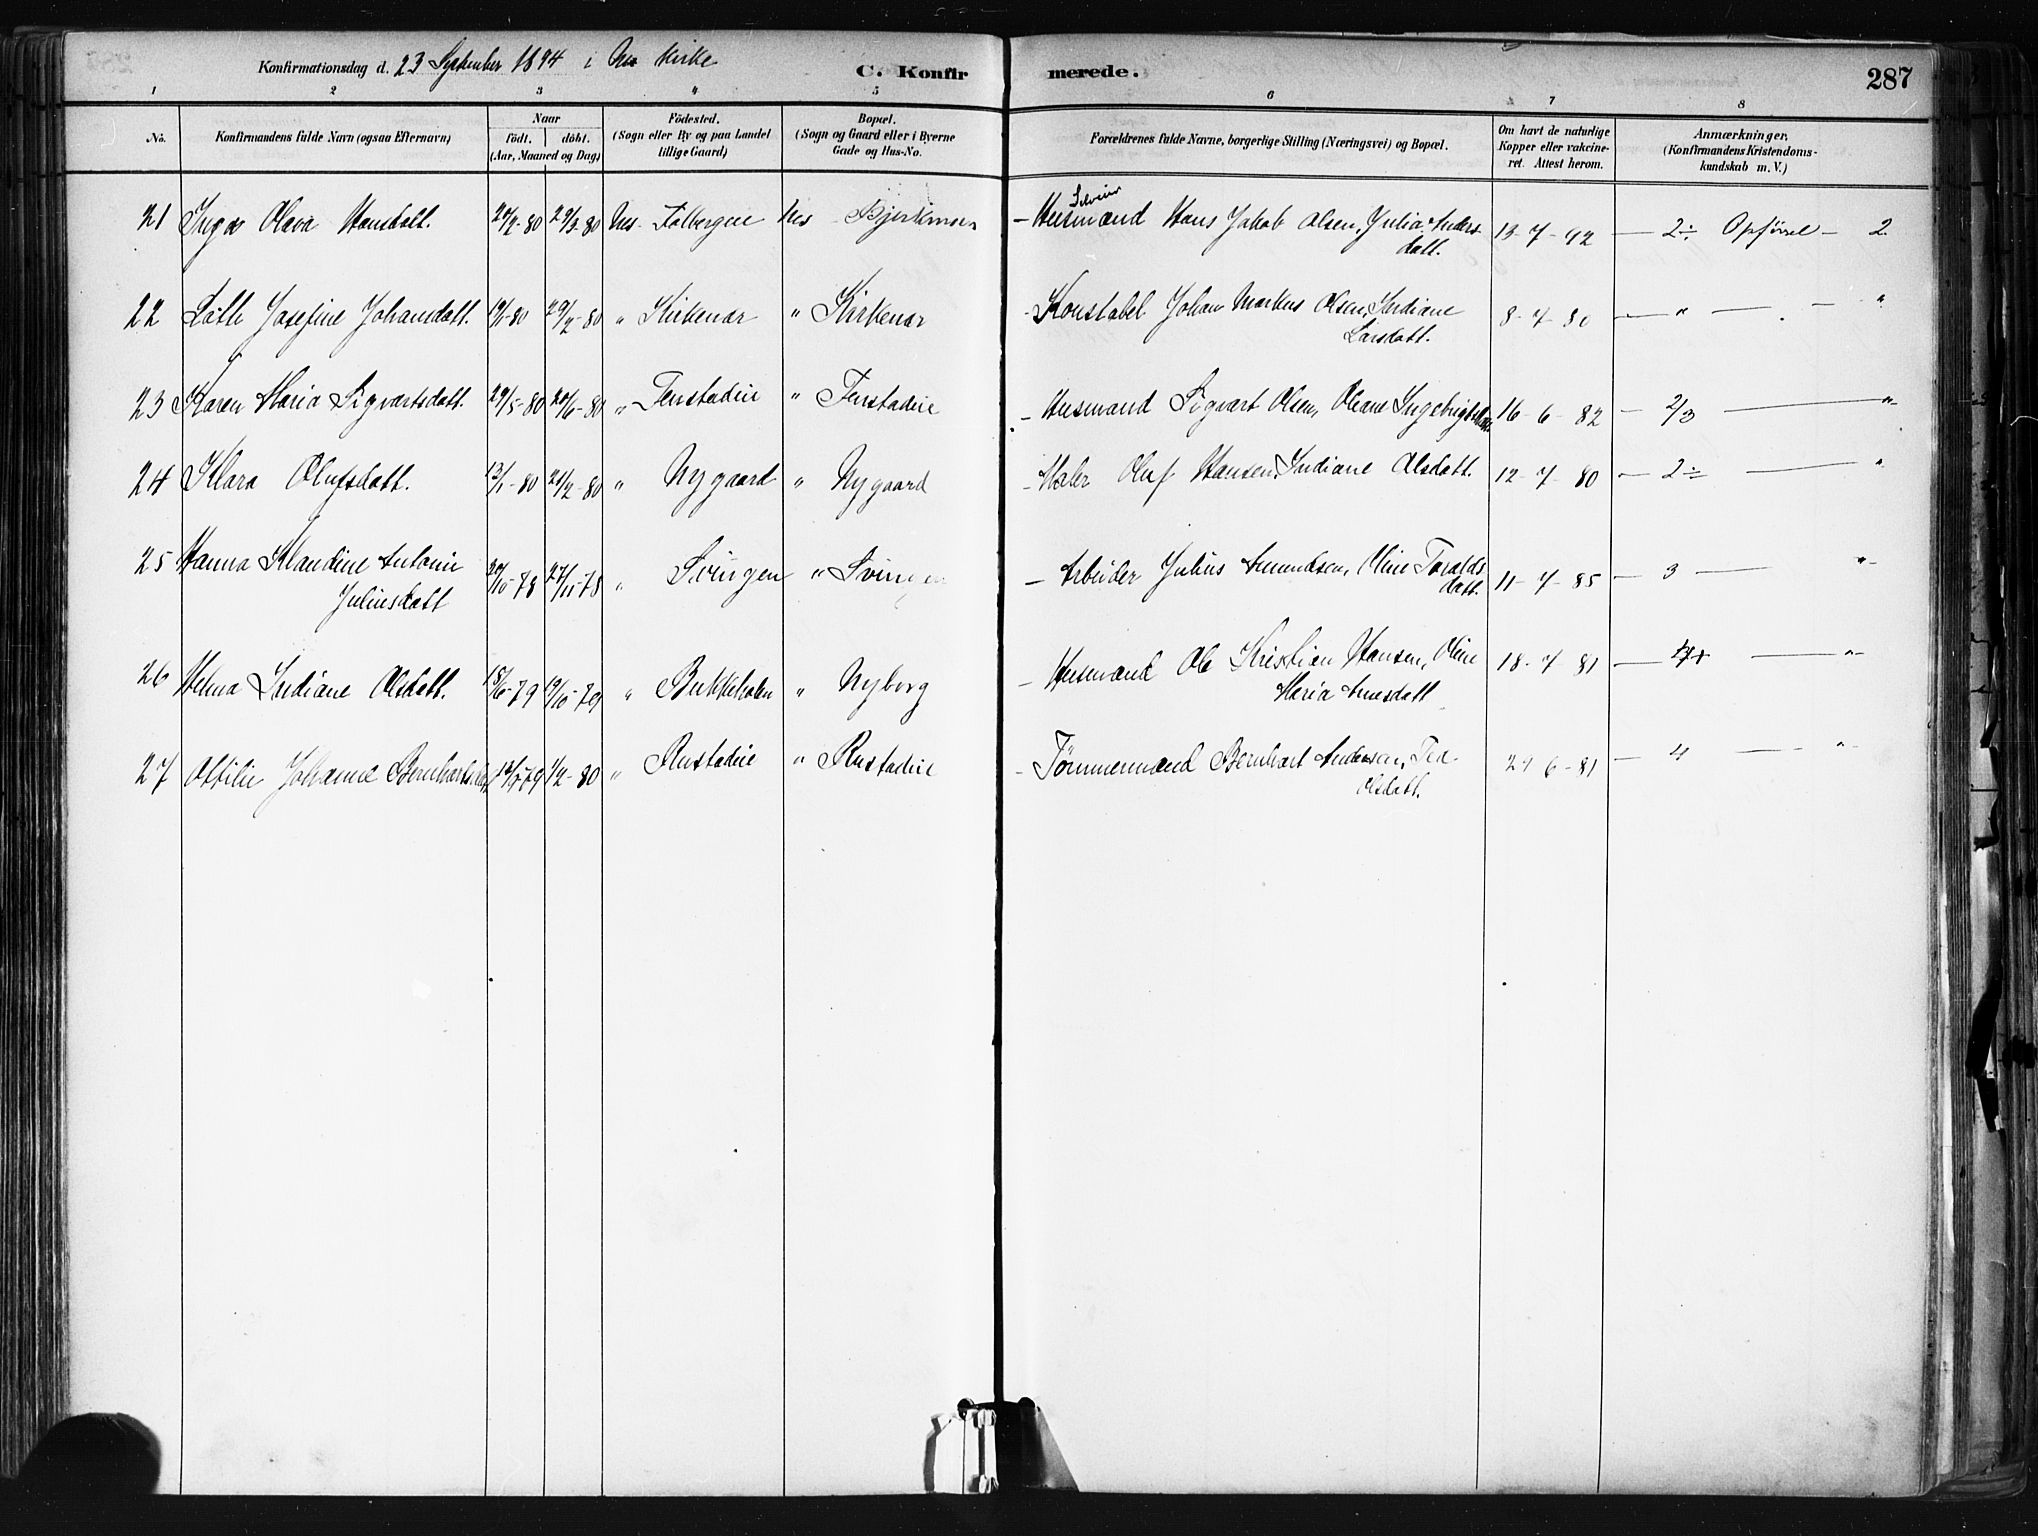 Konfirmationsdag d. 23 September 1894 i Nes Kirke
C. Konfirmerede.
287
1 2 3 4 5 6 7 8
No. Konfirmandens fulde Navn (ogsaa Efternavn) Naar födt. döbt. (Aar, Maaned og Dag) Födested. (Sogn eller By og paa Landet tillige Gaard) Bopæl. (Sogn og Gaard eller i Byerne Gade og Hus-No. Forældrenes fulde Navne, borgerlige Stilling (Næringsvei) og Bopæl. Om havt de naturlige Kopper eller vakcineret. Attest herom. Anmærkninger. (Konfirmandens Kristendomskundskab m. V.)
21 Inga Olava Hansdatt. 80 29/3-80 Nes Nes Husmand Hans Jakob Olsen, Julia Andersdatt. 13-7-92 — 2÷ Opförsel — 2
22 Josefine Johansdatt. 80 29/2-80 " Kirkenær " Kirkenær - Konstabel Johan Markus Olsen, Indiane Larsdatt. 8-7-80 — " — "
23 Karen Maria Sigvartsdatt. 29/5-80 20/6-80 " Tenstadeie " Tenstadeie - Husmand Sigvart Olsen, Oleane 16-6-82 — 2/3 — "
24 Klara Olufsdatt. 13/1-80 21/2-80 " Nygaard " Nygaard - Maler Oluf Hansen, Indiane Olsdatt. 12-7-80 — 2÷ — "
25 Hanna Klaudine Antonie Juliusdatt 20/10-78 27/11-78 " Svingen " Svingen - Arbeider Julius Amundsen, Oline Toraldsdatt. 11-7-85 — 3 — "
26 Helma Indiane Olsdatt. 15/6-79 19/10-79 " Bukkeholen " Nyborg - Husmand Ole Kristian Hansen, Oline Maria Arnesdatt 18-7-81 — — "
27 Ottilie Johanne 79 1/2-80 " Rustadeie " Rustadeie - Tömmermand Bernhart Andersen, Tea Olsdatt. 29-6-81 — 4 — "